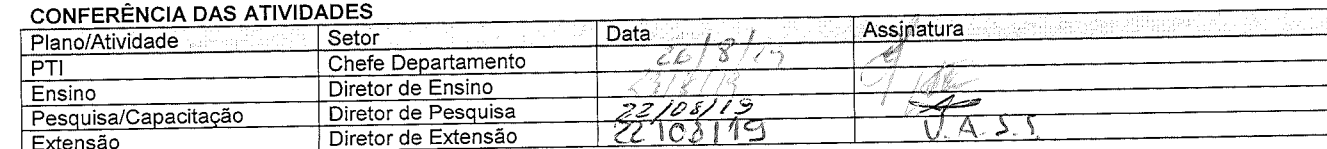 CONFERÊNCIA DAS ATIVIDADES
Plano/Atividade Setor Data Assinatura
PTI Chefe Departamento
Ensino Diretor de Ensino
Pesquisa/Capacitação Diretor de Pesquisa 22/08/19
Extensão Diretor de Extensão 22/08/19 V.A.S.S.